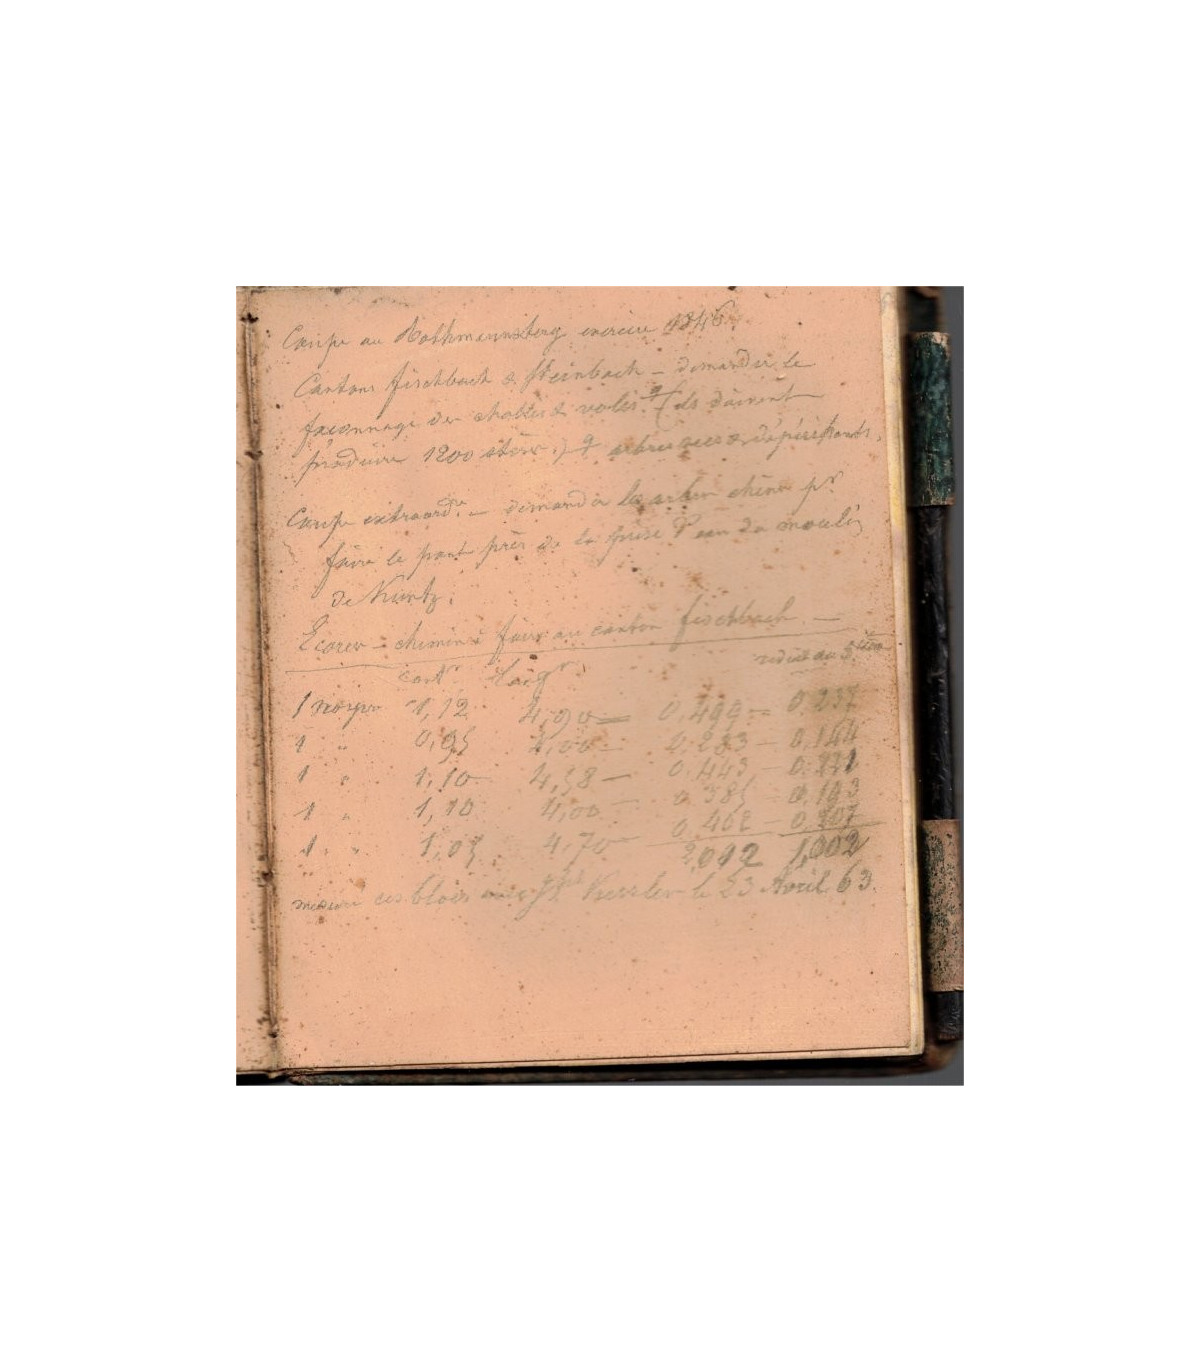 Coupe au Rothmannsberg exercice 1846.
Cantons fischbach & Steinbach – demander le
façonnage des chablis & volis (ils doivent
produire 1200 stères.) & arbres secs & dépérissants.
Coupe extraordre – demander les arbres chêne pr
faire le pont près de la prise d'eau du moulin
de Kuntz.
chemin à faire au canton fischbach –
réduit au 5ème
Longr
1 noyer 1,12 4,90 – 0,499 – 0,237
1 " 0,95 4,00 – 0,283 – 0,144
1 " 1,10 – 4,58 – 0,443 – 0,221
1 " 1,10 4,00 – 0,385 – 0,193
1 " 1,05 4,70 – 0,402 – 0,207
2,012 1,002
mesuré ces blois avec le 23 Avril 63.